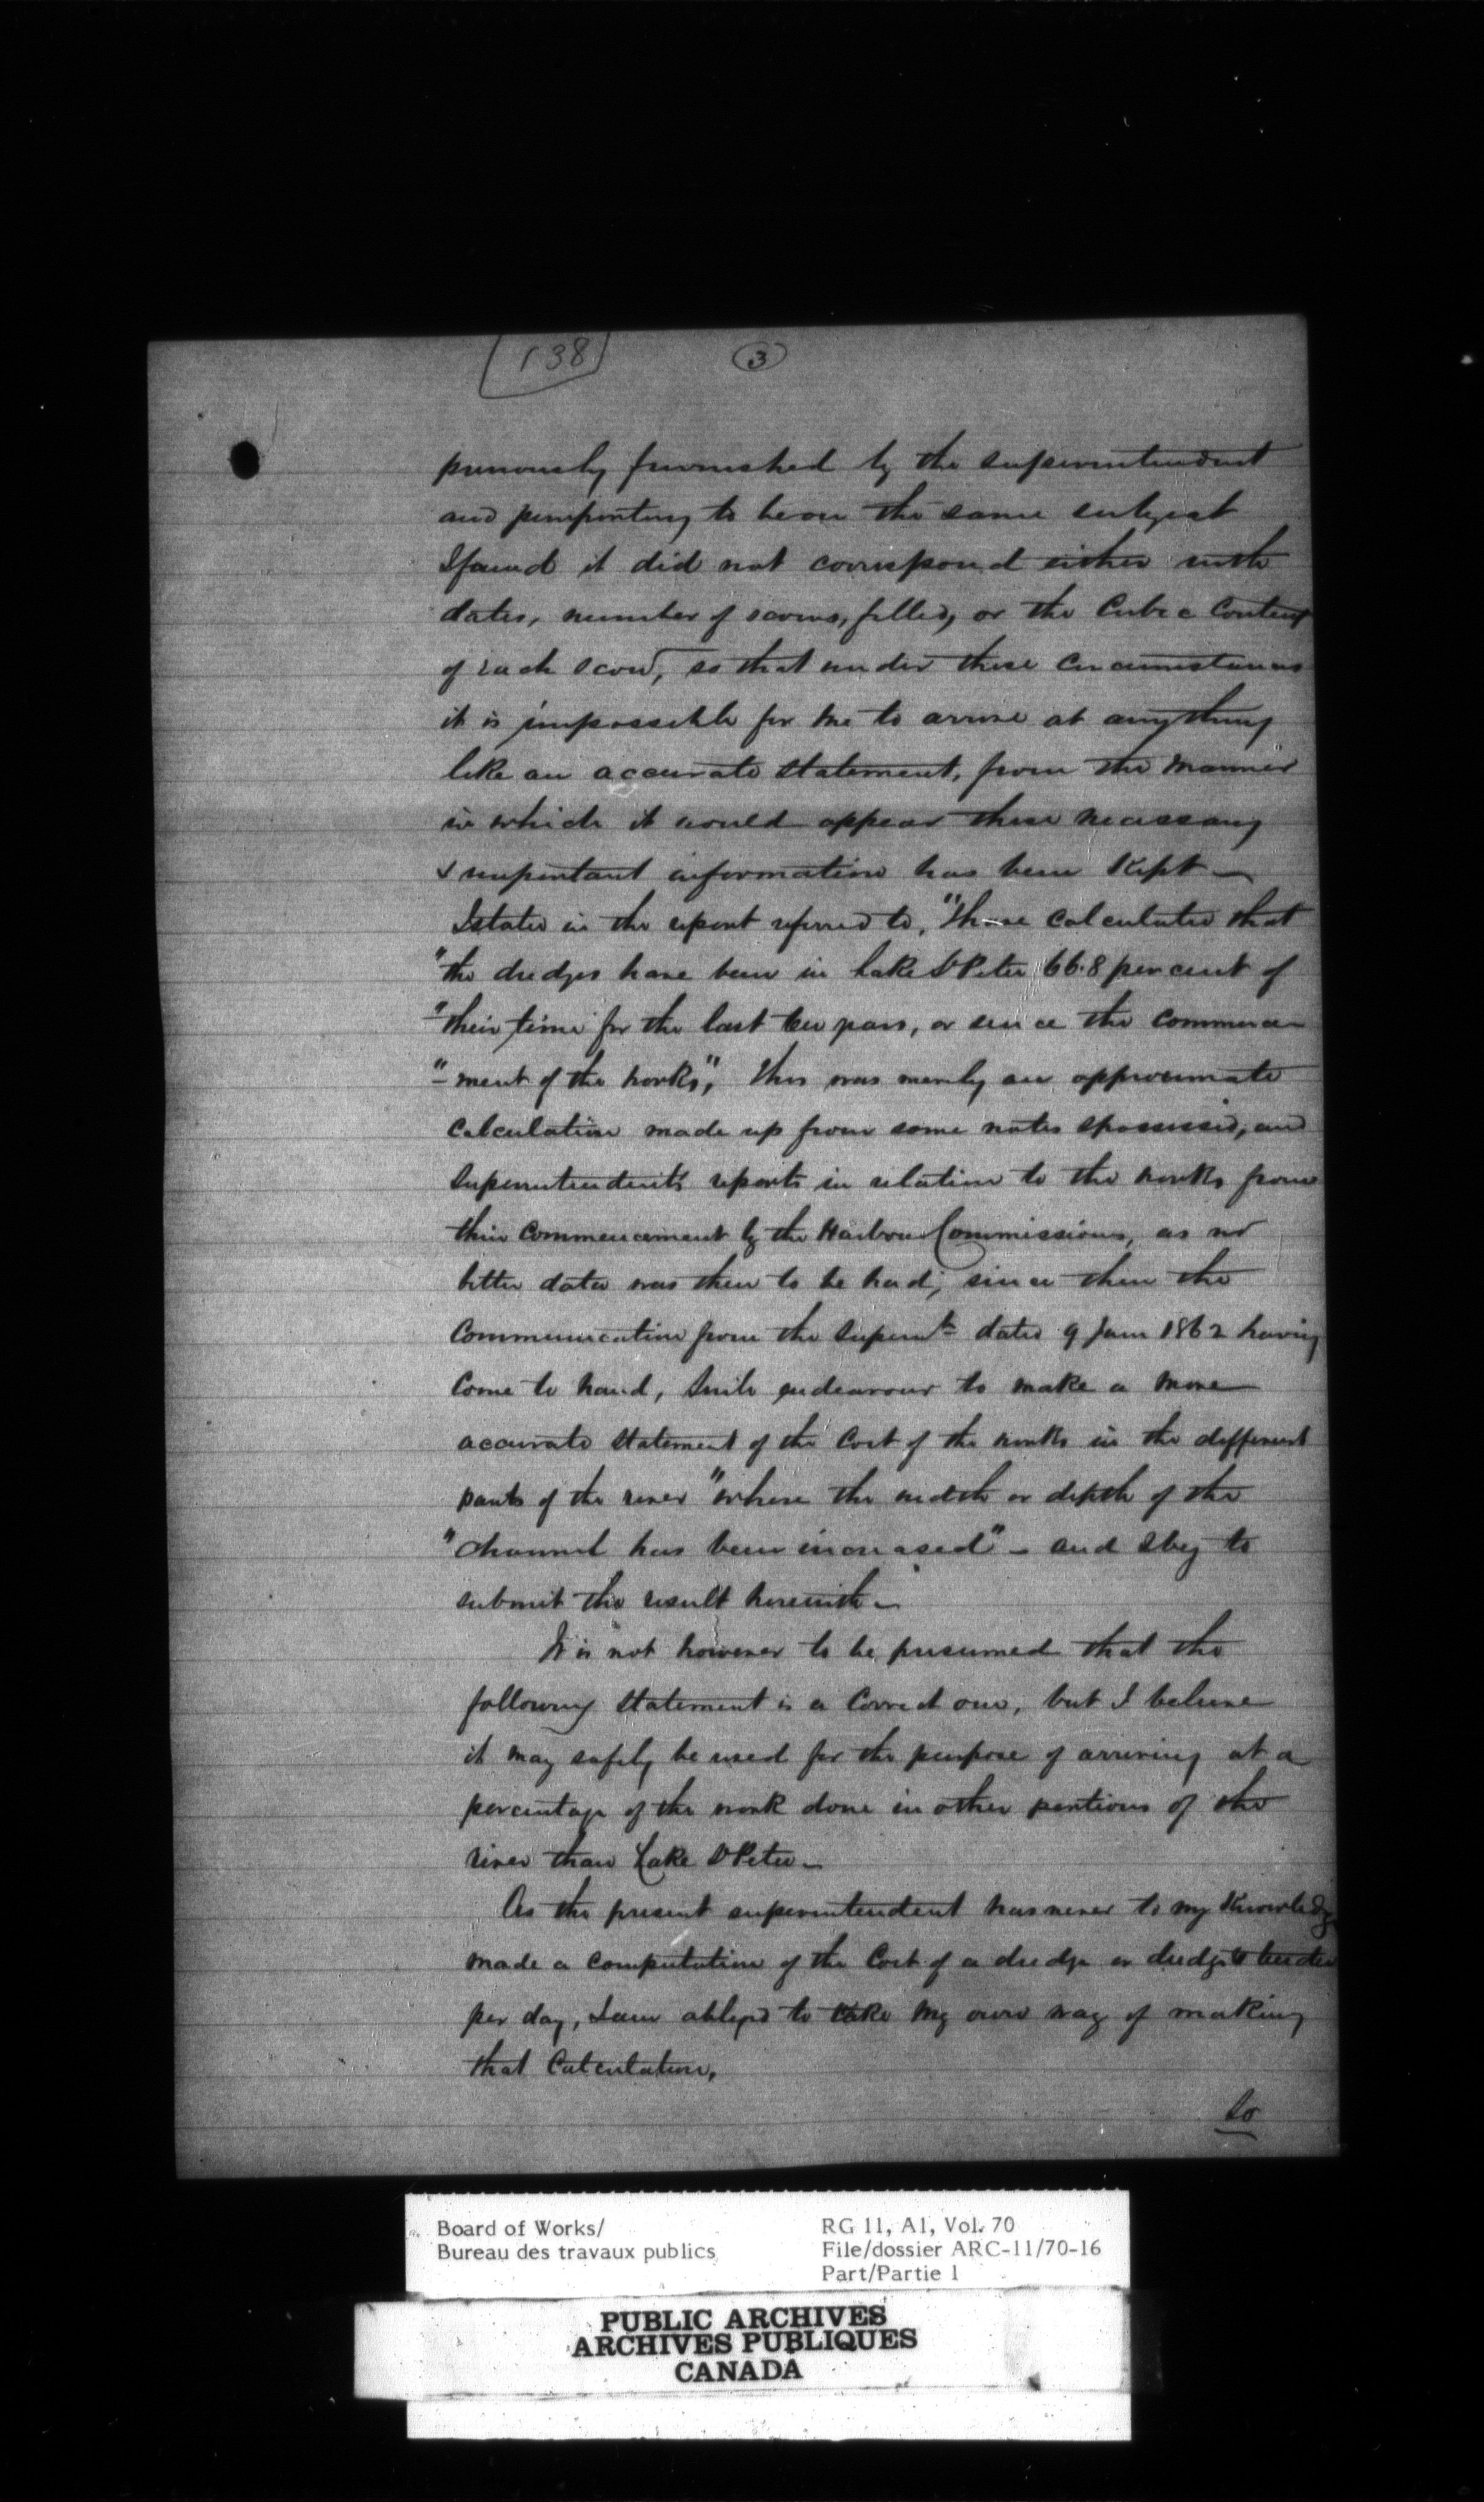 138
3
previously furnished by the superintendent
and purporting to be on the same subject
I found it did not correspond either with
dates, number of scows, filled, or the Cubic Content
of each scow, so that under these Circumstances
it is impossible for me to arrive at anything
like an accurate statement, from the manner
in which it would appear these necessary
& important information has been Kept —
I stated in the report referred to, "I have Calculated that
"the dredges have been in Lake St Peter 66.8 per cent of
"their time for the last ten years, or since the commence
"-ment of the works", This was merely an approximate
Calculation made up from some notes I possessed, and
Superintendents reports in relation to the works from
their Commencement by the Harbour Commissions, as no
better data was then to be had; since then the
Communication from the Superint dated 9 June 1862 having
Come to hand, I will endeavour to make a more
accurate statement of the Cost of the works in the different
parts of the river "where the width or depth of the
"channel has been increased" – and I beg to
submit the result herewith –
It is not however to be presumed that the
following statement is a Correct one, but I believe
it may safely be used for the purpose of arriving at a
percentage of the work done in other portions of the
river than Lake St Peter –
As the present superintendent has never to my Knowledge
made a computation of the Cost of a dredge or dredge & tender
per day, I am obliged to take my own way of making
that Calculation,
So
Board of Works/
Bureau des travaux publics
RG 11, A1, Vol. 70
File/dossier ARC-11/70-16
Part/Partie 1
PUBLIC ARCHIVES
ARCHIVES PUBLIQUES
CANADA